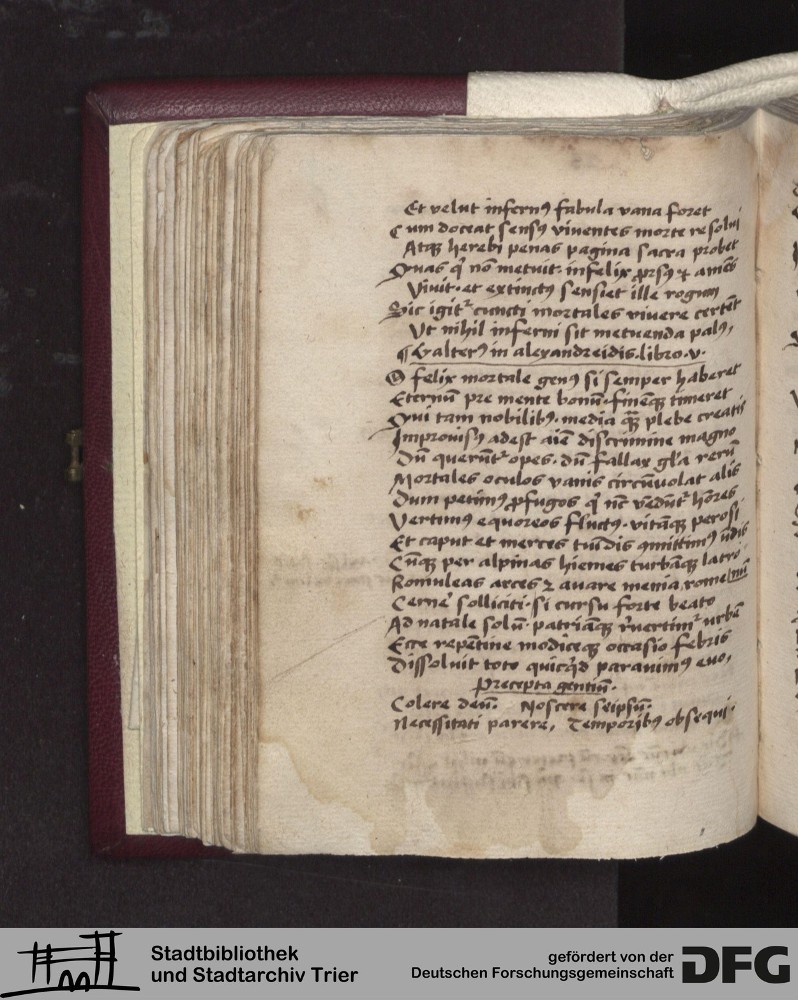 Et velut infernꝰ fabula vana foret
Cum doceat sensꝰ viventes morte resolui
Atqꝫ herebi penas pagina sacra probet
Quas q̇ nō metuit· infelix ꝓrsꝰ ⁊ amēs
Vivit· et extinctꝰ sensiet ille rogum
Sic igitᷣ cuncti mortales vivere certēt
Ut nihil inferni sit metuenda palꝰ,
¶Galterꝰ in alexandreidis·libro·v·
O felix mortale genꝰ si semper haberet
Eternū pre mente bonū·finēqꝫ timeret
Qui tam nobilibꝰ· media qꝫ̄ plebe creatis
Improvisꝰ adest aīe discrimine magno
Dū querūtᷣ opes· dū fallax gl'a rerū
Mortales oculos vanis circūuolat alis
Dum petimꝰ ꝓfugos q̇ nc̄ vēdūtᷣ hōres
Vertimꝰ equoreos fluctꝰ· vitāqꝫ perosi
Et caput et merces tuīdis ꝯmittimꝰ ūdis
Cūqꝫ per alpinas hiemes turbāqꝫ latro
Romuleas arces ⁊ avare menia rome nū
Cerne' solliciti·si cursu forte beato
Ad natale solū· patriāqꝫ r̄vertimᷣ urbē
Ecce repētine modiceqꝫ occasio febris
Dissoluit toto quicq̇d paravimꝰ euo,
Precepta gentiū·
Colere deū. Noscere seipsū·
Necessitati parere, Temporibꝰ obsequi·
Stadtbibliothek
und Stadtarchiv Trier
gefördert von der
Deutschen Forschungsgemeinschaft
DFG